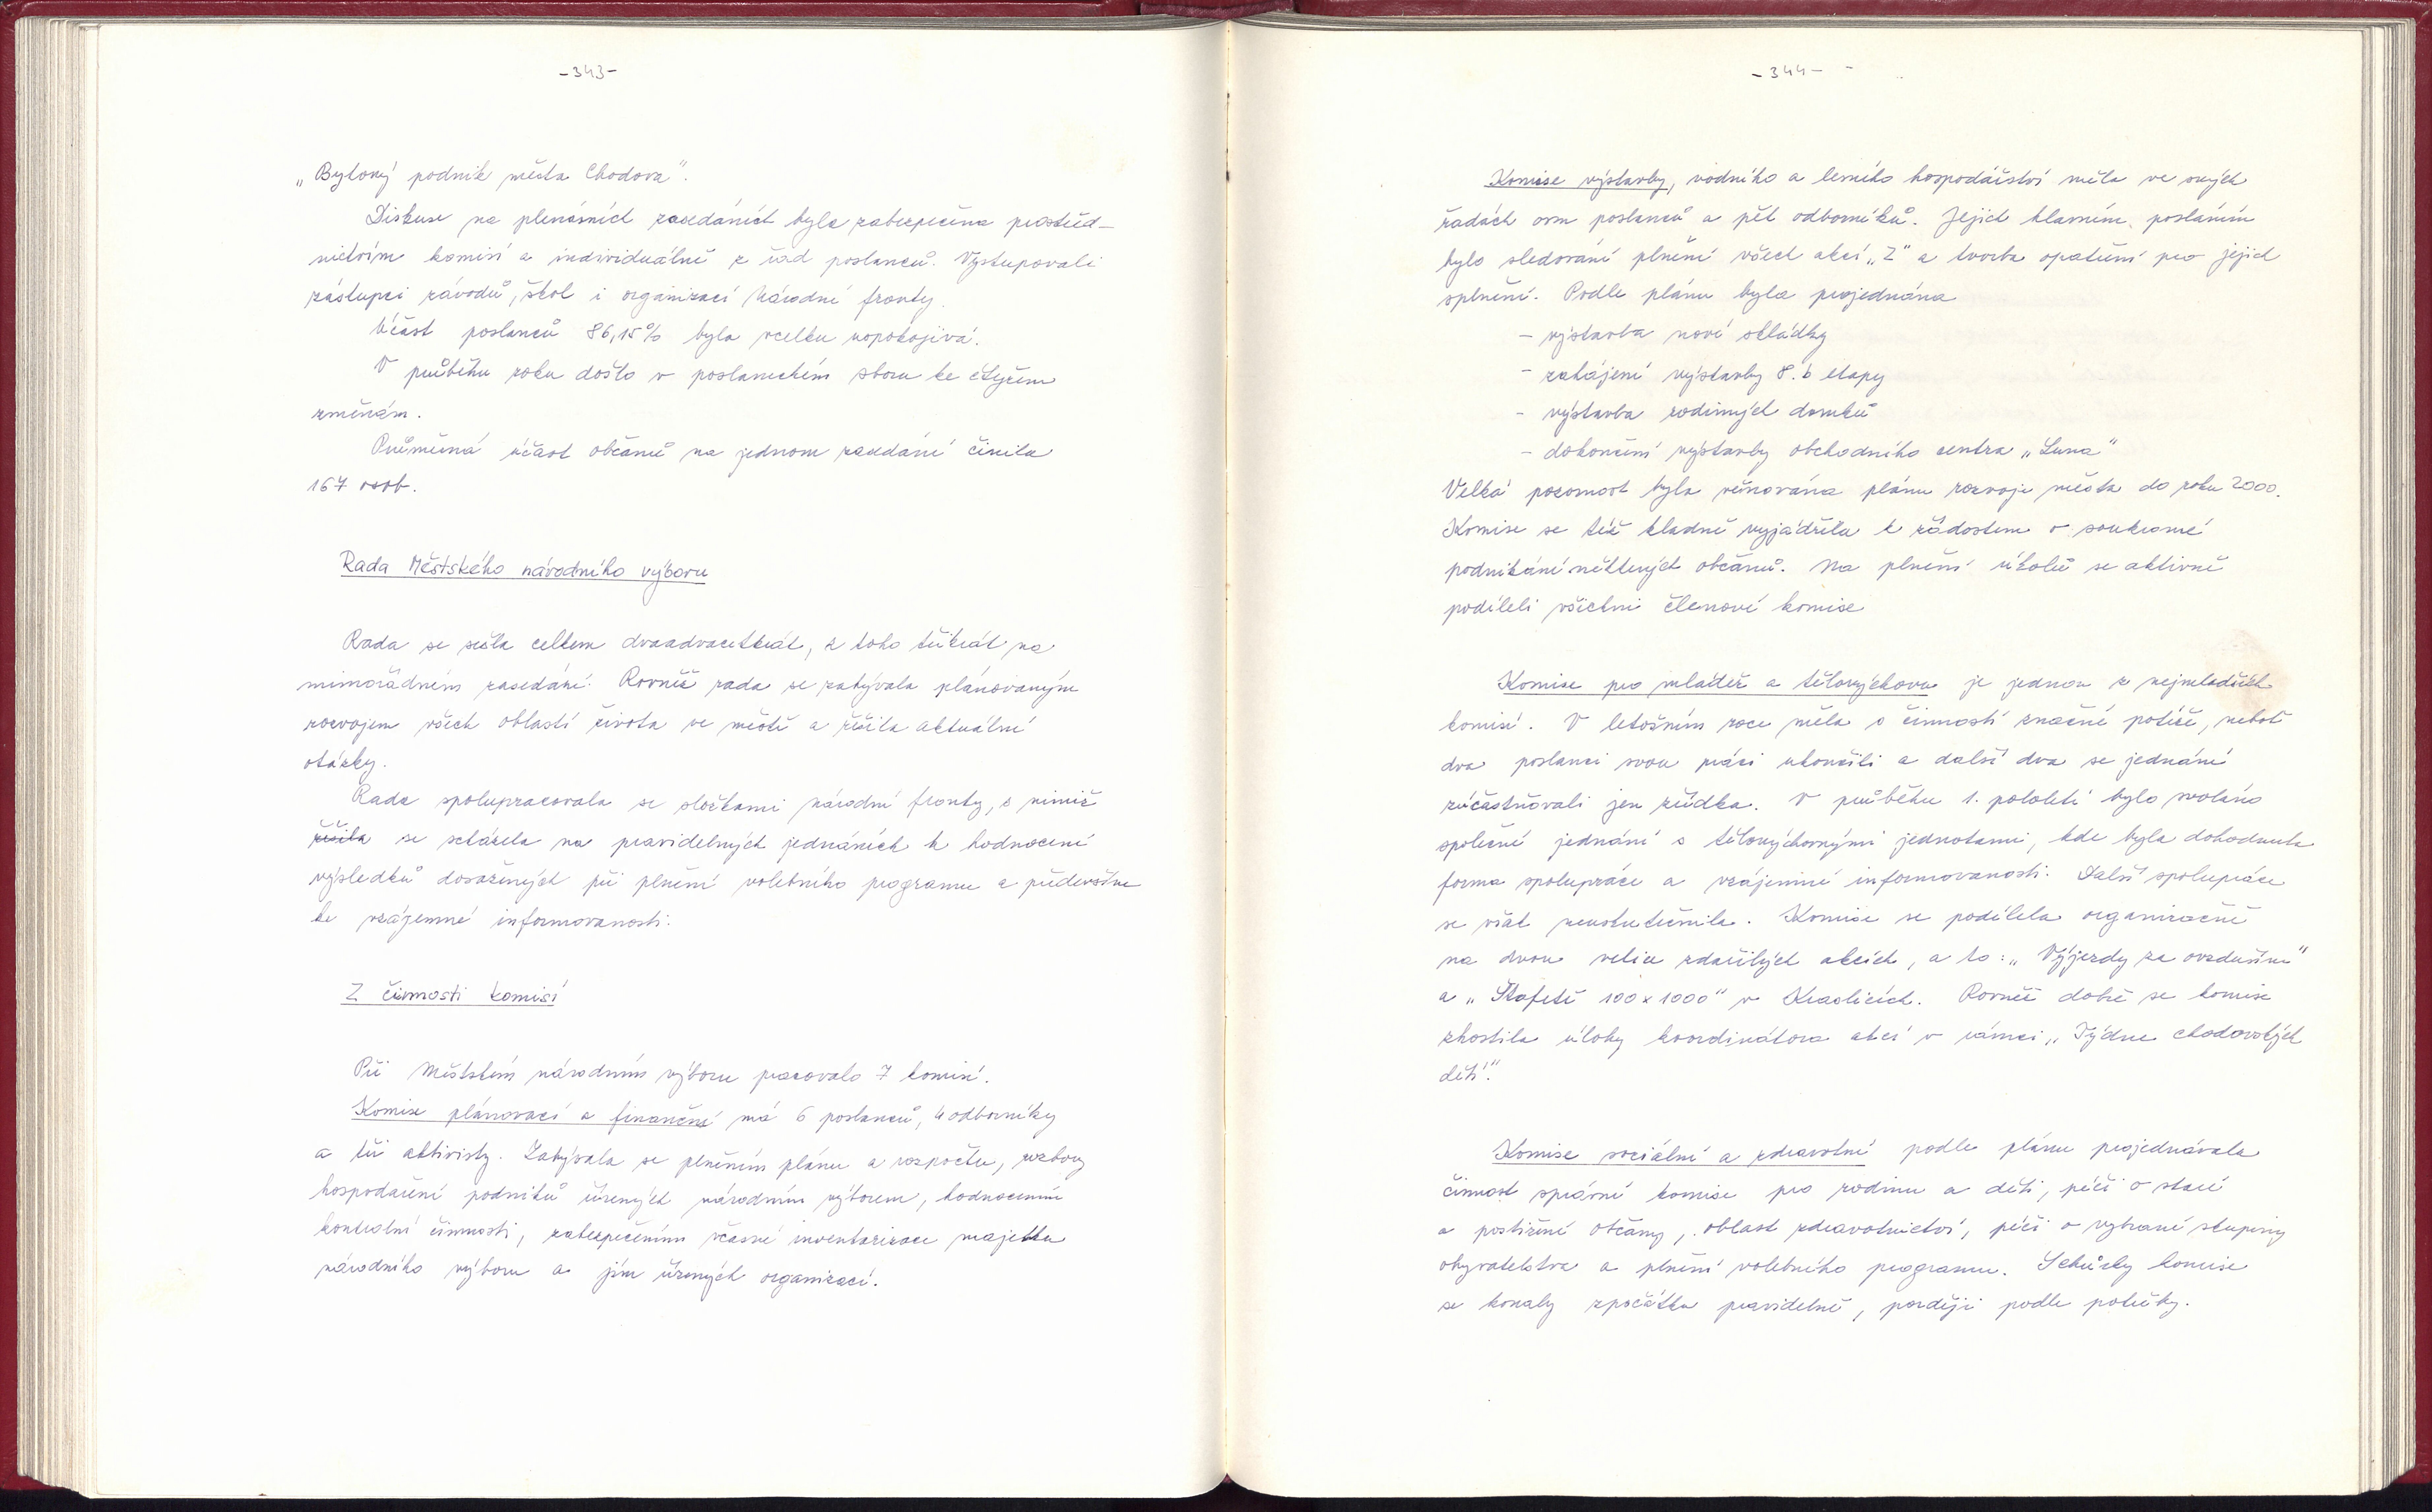 -343-
„Bytový podnik města Chodova".
Diskuse na plenárních zasedáních byla zabezpečena prostřed-
nictvím komisí a individuálně z řad poslanců. Vystupovali
zástupci závodů, škol i organizací Národní fronty.
Účast poslanců 86,15% byla vcelku uspokojivá.
V průběhu roku došlo v poslaneckém sboru ke čtyřem
změnám.
Průměrná účast občanů na jednom zasedání činila
167 osob.
Rada Městského národního výboru
Rada se sešla celkem dvaadvacetkrát, z toho třikrát na
mimořádném zasedání. Rovněž rada se zabývala plánovaným
rozvojem všech oblastí života ve městě a řešila aktuální
otázky.
Rada spolupracovala se složkami národní fronty, s nimiž
řešila se scházela na pravidelných jednáních k hodnocení
výsledků dosažených při plnění volebního programu a především
ke vzájemné informovanosti.
Z činnosti komisí
Při Městském národním výboru pracovalo 7 komisí.
Komise plánovací a finanční má 6 poslanců, 4 odborníky
a tři aktivisty. Zabývala se plněním plánu a rozpočtu, rozbory
hospodaření podniků řízených národním výborem, hodnocením
kontrolní činnosti, zabezpečením včasné inventarizace majetku
národního výboru a jím řízených organizací.
-344-
Komise výstavby, vodního a lesního hospodářství měla ve svých
řadách osm poslanců a pět odborníků. Jejich hlavním posláním
bylo sledování plnění všech akcí „Z" a tvorba opatření pro jejich
splnění. Podle plánu byla projednána
- výstavba nové skládky
- zahájení výstavby 8. b etapy
- výstavba rodinných domků
- dokončení výstavby obchodního centra „Luna"
Velká pozornost byla věnována plánu rozvoje města do roku 2000.
Komise se též kladně vyjádřila k žádostem o soukromé
podnikání některých občanů. Na plnění úkolů se aktivně
podíleli všichni členové komise
Komise pro mládež a tělovýchovu je jednou z nejmladších
komisí. V letošním roce měla s činností značné potíže, neboť
dva poslanci svou práci ukončili a další dva se jednání
zúčastňovali jen zřídka. V průběhu 1. pololetí bylo svoláno
společné jednání s tělovýchovnými jednotami, kde byla dohodnuta
forma spolupráce a vzájemné informovanosti. Další spolupráce
se však neuskutečnila. Komise se podílela organizačně
na dvou velice zdařilých akcích, a to: „Výjezdy za ovzduším"
a „Štafetě 100 x 1000" v Kraslicích. Rovněž dobře se komise
zhostila úlohy koordinátora akcí v rámci „Týdne chodovských
dětí."
Komise sociální a zdravotní podle plánu projednávala
činnost správní komise pro rodinu a děti, péči o staré
a postižené občany, oblast zdravotnictví, péči o vybrané skupiny
obyvatelstva a plnění volebního programu. Schůzky komise
se konaly zpočátku pravidelně, později podle potřeby.